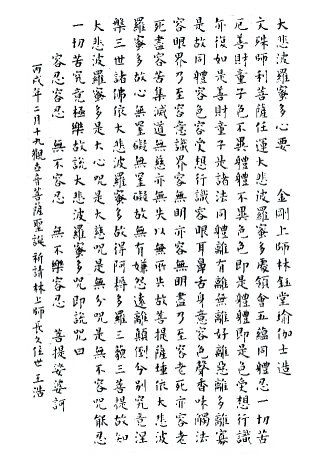 大悲波羅蜜多心要　金剛上師林鈺堂瑜伽士造
文殊師利菩薩任運大悲波羅蜜多處領會五蘊同體忍一切苦
厄善財童子色不異體體不異色色即是體體即是色受想行識
亦復如是善財童子是諸法同體離有離無離好離惡離多離寡
是故同體容色容受想行識容眼耳鼻舌身意容色聲香味觸法
容眼界乃至容意識界容無明亦容無明盡乃至容老死亦容老
死盡容苦集滅道無慈亦無失以無所失故菩提薩埵依大悲波
羅蜜多故心無罣礙無罣礙故無有嫌怨遠離顛倒分別究竟涅
槃三世諸佛依大悲波羅蜜多故得阿耨多羅三藐三菩提故知
大悲波羅蜜多是大心咒是大慈咒是無分咒是無不容咒能忍
一切苦究竟極樂故說大悲波羅蜜多咒即說咒曰
容忍容忍　無不容忍　無不樂容忍　菩提娑婆訶
丙戌年二月十九觀世音菩薩聖誕 祈請林上師長久住世 王浩